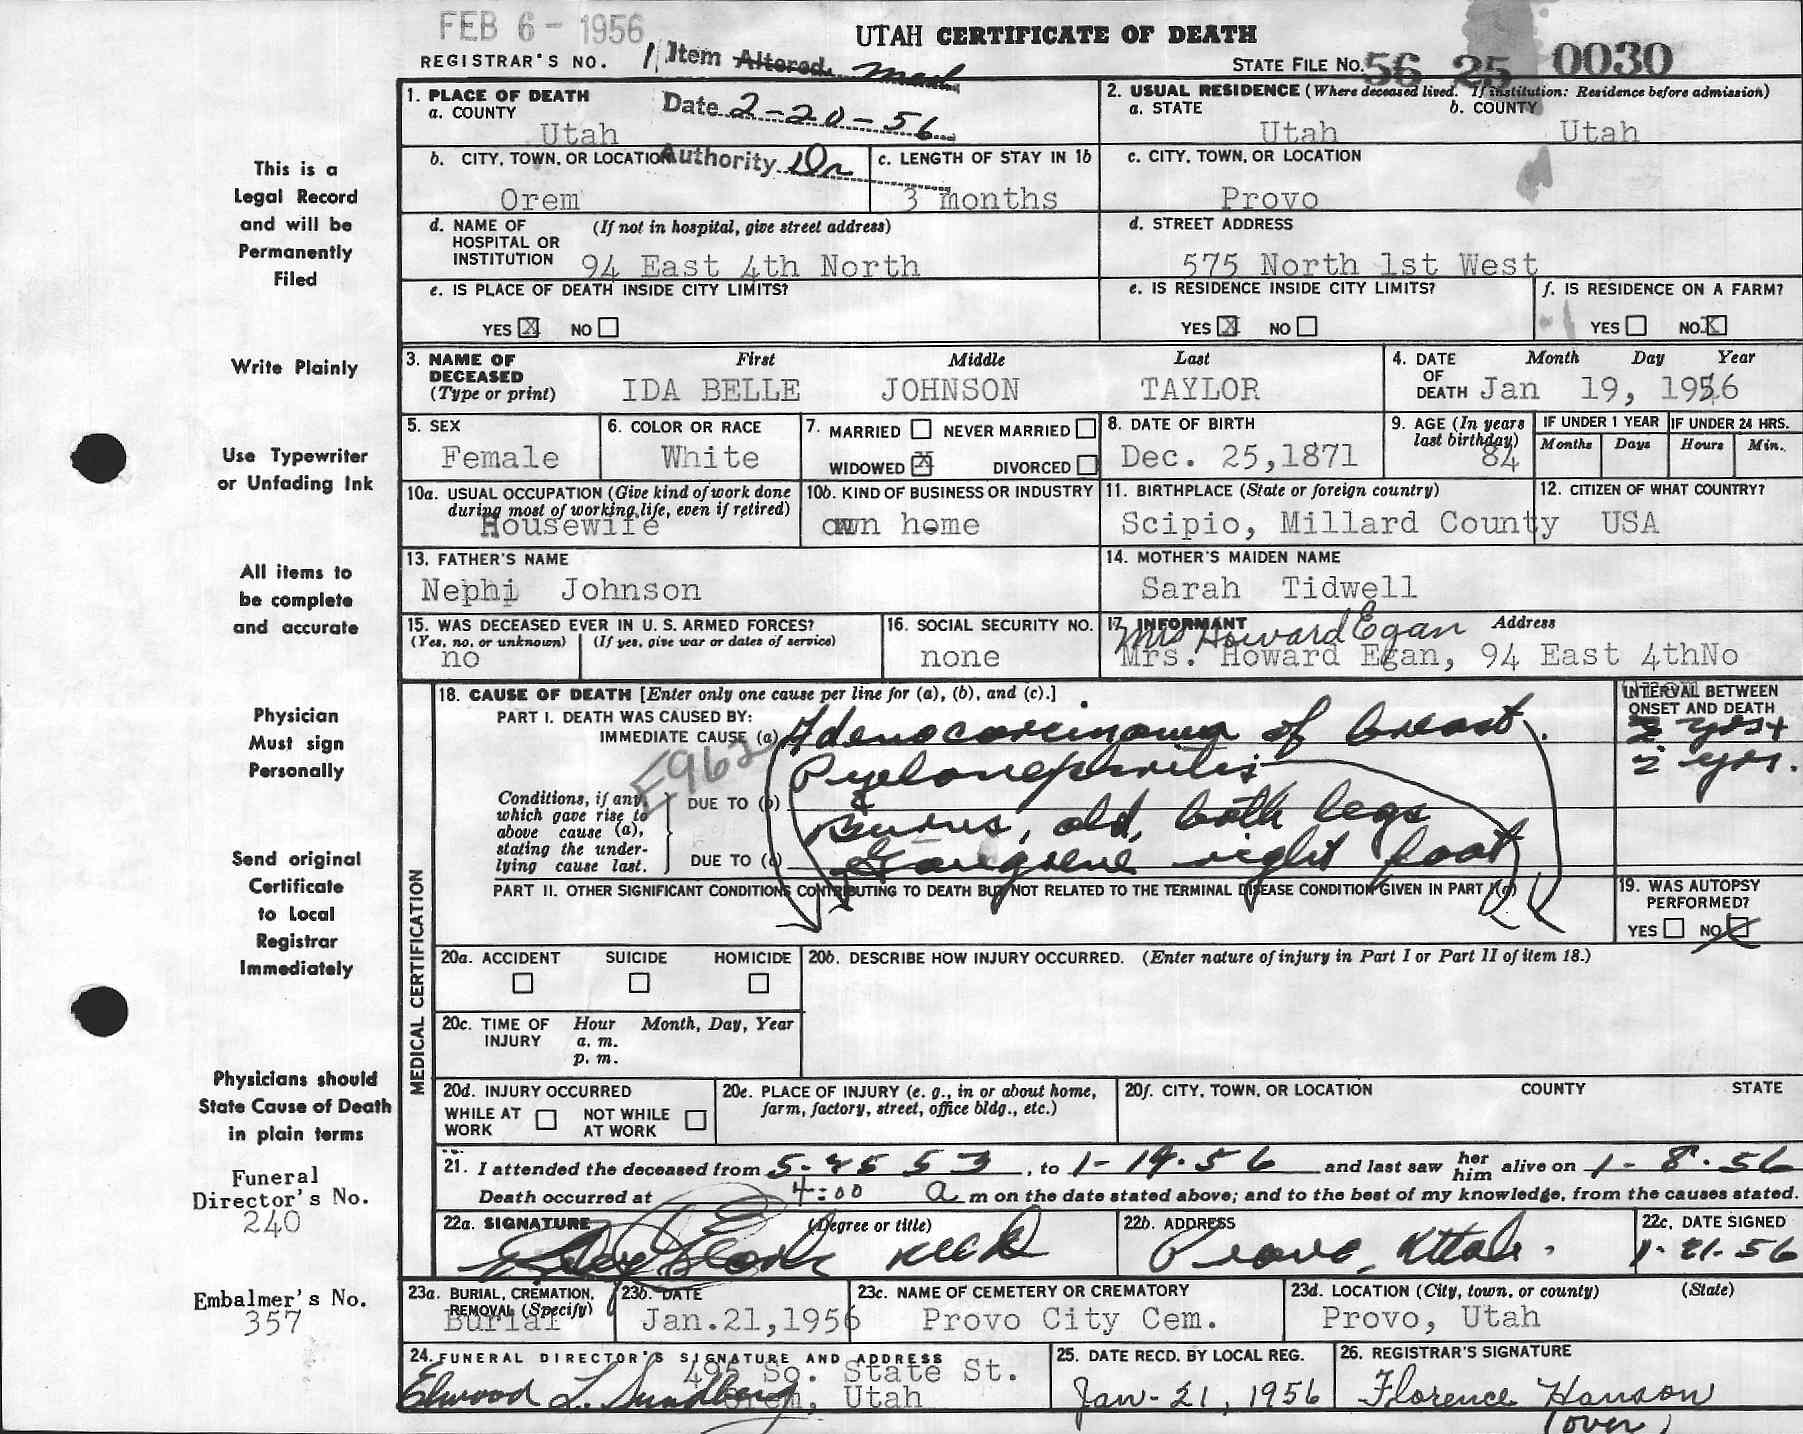 FEB 6 - 1956
UTAH CERTIFICATE OF DEATH
REGISTRAR'S NO.
1 Item Altered
STATE FILE No. 56 25 0030
1. PLACE OF DEATH
a. COUNTY
Utah
Date 2-20-56
2. USUAL RESIDENCE (Where deceased lived. If institution: Residence before admission)
a. STATE
Utah
b. COUNTY
Utah
b. CITY, TOWN, OR LOCATION
Orem
Authority Dr
c. LENGTH OF STAY IN 1b
3 months
c. CITY, TOWN, OR LOCATION
Provo
d. NAME OF HOSPITAL OR INSTITUTION
(If not in hospital, give street address)
94 East 4th North
d. STREET ADDRESS
575 North 1st West
e. IS PLACE OF DEATH INSIDE CITY LIMITS?
YES X NO
e. IS RESIDENCE INSIDE CITY LIMITS?
YES X NO
f. IS RESIDENCE ON A FARM?
YES NO X
3. NAME OF DECEASED (Type or print)
First Middle Last
IDA BELLE JOHNSON TAYLOR
4. DATE OF DEATH
Month Day Year
Jan 19, 1956
5. SEX
Female
6. COLOR OR RACE
White
7. MARRIED NEVER MARRIED
WIDOWED X DIVORCED
8. DATE OF BIRTH
Dec. 25,1871
9. AGE (In years last birthday)
84
IF UNDER 1 YEAR
Months Days
IF UNDER 24 HRS.
Hours Min.
10a. USUAL OCCUPATION (Give kind of work done during most of working life, even if retired)
Housewife
10b. KIND OF BUSINESS OR INDUSTRY
own home
11. BIRTHPLACE (State or foreign country)
Scipio, Millard County
12. CITIZEN OF WHAT COUNTRY?
USA
13. FATHER'S NAME
Nephi Johnson
14. MOTHER'S MAIDEN NAME
Sarah Tidwell
15. WAS DECEASED EVER IN U. S. ARMED FORCES?
(Yes, no, or unknown) (If yes, give war or dates of service)
no
16. SOCIAL SECURITY NO.
none
17. INFORMANT Address
Mrs Howard Egan
Mrs. Howard Egan, 94 East 4thNo
18. CAUSE OF DEATH [Enter only one cause per line for (a), (b), and (c).]
INTERVAL BETWEEN ONSET AND DEATH
PART I. DEATH WAS CAUSED BY:
IMMEDIATE CAUSE (a) Adenocarcinoma of breast.
2 yrs+
Pyelonephritis
2 yrs.
E962
Conditions, if any, which gave rise to above cause (a), stating the underlying cause last.
DUE TO (b)
&
Burns, old, both legs
DUE TO (c)
Gangrene right foot
PART II. OTHER SIGNIFICANT CONDITIONS CONTRIBUTING TO DEATH BUT NOT RELATED TO THE TERMINAL DISEASE CONDITION GIVEN IN PART I(a)
19. WAS AUTOPSY PERFORMED?
YES NO X
MEDICAL CERTIFICATION
20a. ACCIDENT SUICIDE HOMICIDE
20b. DESCRIBE HOW INJURY OCCURRED. (Enter nature of injury in Part I or Part II of item 18.)
20c. TIME OF INJURY
Hour Month, Day, Year
a. m.
p. m.
20d. INJURY OCCURRED
WHILE AT WORK NOT WHILE AT WORK
20e. PLACE OF INJURY (e. g., in or about home, farm, factory, street, office bldg., etc.)
20f. CITY, TOWN, OR LOCATION COUNTY STATE
21. I attended the deceased from 5-25 53, to 1-19-56 and last saw her him alive on 1-8-56
Death occurred at 4:00 a m on the date stated above; and to the best of my knowledge, from the causes stated.
22a. SIGNATURE (Degree or title)
22b. ADDRESS
Provo, Utah.
22c. DATE SIGNED
1-21-56
23a. BURIAL, CREMATION, REMOVAL (Specify)
Burial
23b. DATE
Jan.21,1956
23c. NAME OF CEMETERY OR CREMATORY
Provo City Cem.
23d. LOCATION (City, town, or county) (State)
Provo, Utah
24. FUNERAL DIRECTOR'S SIGNATURE AND ADDRESS
495 So. State St.
Elwood L. Sundberg
Orem, Utah
25. DATE RECD. BY LOCAL REG.
Jan-21, 1956
26. REGISTRAR'S SIGNATURE
Florence Hanson
(over)
This is a
Legal Record
and will be
Permanently
Filed
Write Plainly
Use Typewriter
or Unfading Ink
All items to
be complete
and accurate
Physician
Must sign
Personally
Send original
Certificate
to Local
Registrar
Immediately
Physicians should
State Cause of Death
in plain terms
Funeral
Director's No.
240
Embalmer's No.
357